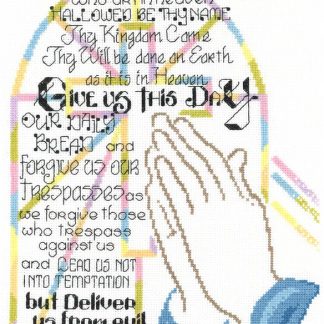 who art in heaven
HALLOWED BE THY NAME
Thy Kingdom Come
Thy Will be done on Earth
as it is in Heaven
GIVE US THIS DAY
OUR DAILY
BREAD and
FORGIVE US OUR
TRESPASSES as
we forgive those
who trespass
against us
and LEAD US NOT
INTO TEMPTATION
but Deliver
us from evil